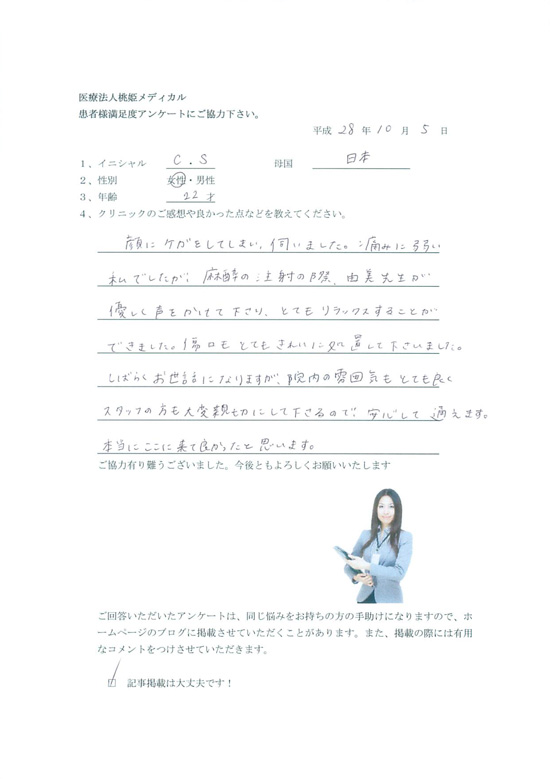 医療法人桃姫メディカル
患者様満足度アンケートにご協力下さい。
平成 28 年 10 月 5 日
1、イニシャル C.S 母国 日本
2、性別 女性・男性
3、年齢 22 才
4、クリニックのご感想や良かった点などを教えてください。
顔にケガをしてしまい、伺いました。痛みに弱い
私でしたが、麻酔の注射の際、由美先生が
優しく声をかけて下さり、とてもリラックスすることが
できました。傷口もとてもきれいに処置して下さいました。
しばらくお世話になりますが、院内の雰囲気もとても良く
スタッフの方も大変親切にして下さるので、安心して通えます。
本当にここに来て良かったと思います。
ご協力有り難うございました。今後ともよろしくお願いいたします
ご回答いただいたアンケートは、同じ悩みをお持ちの方の手助けになりますので、ホ
ームページのブログに掲載させていただくことがあります。また、掲載の際には有用
なコメントをつけさせていただきます。
☑ 記事掲載は大丈夫です！